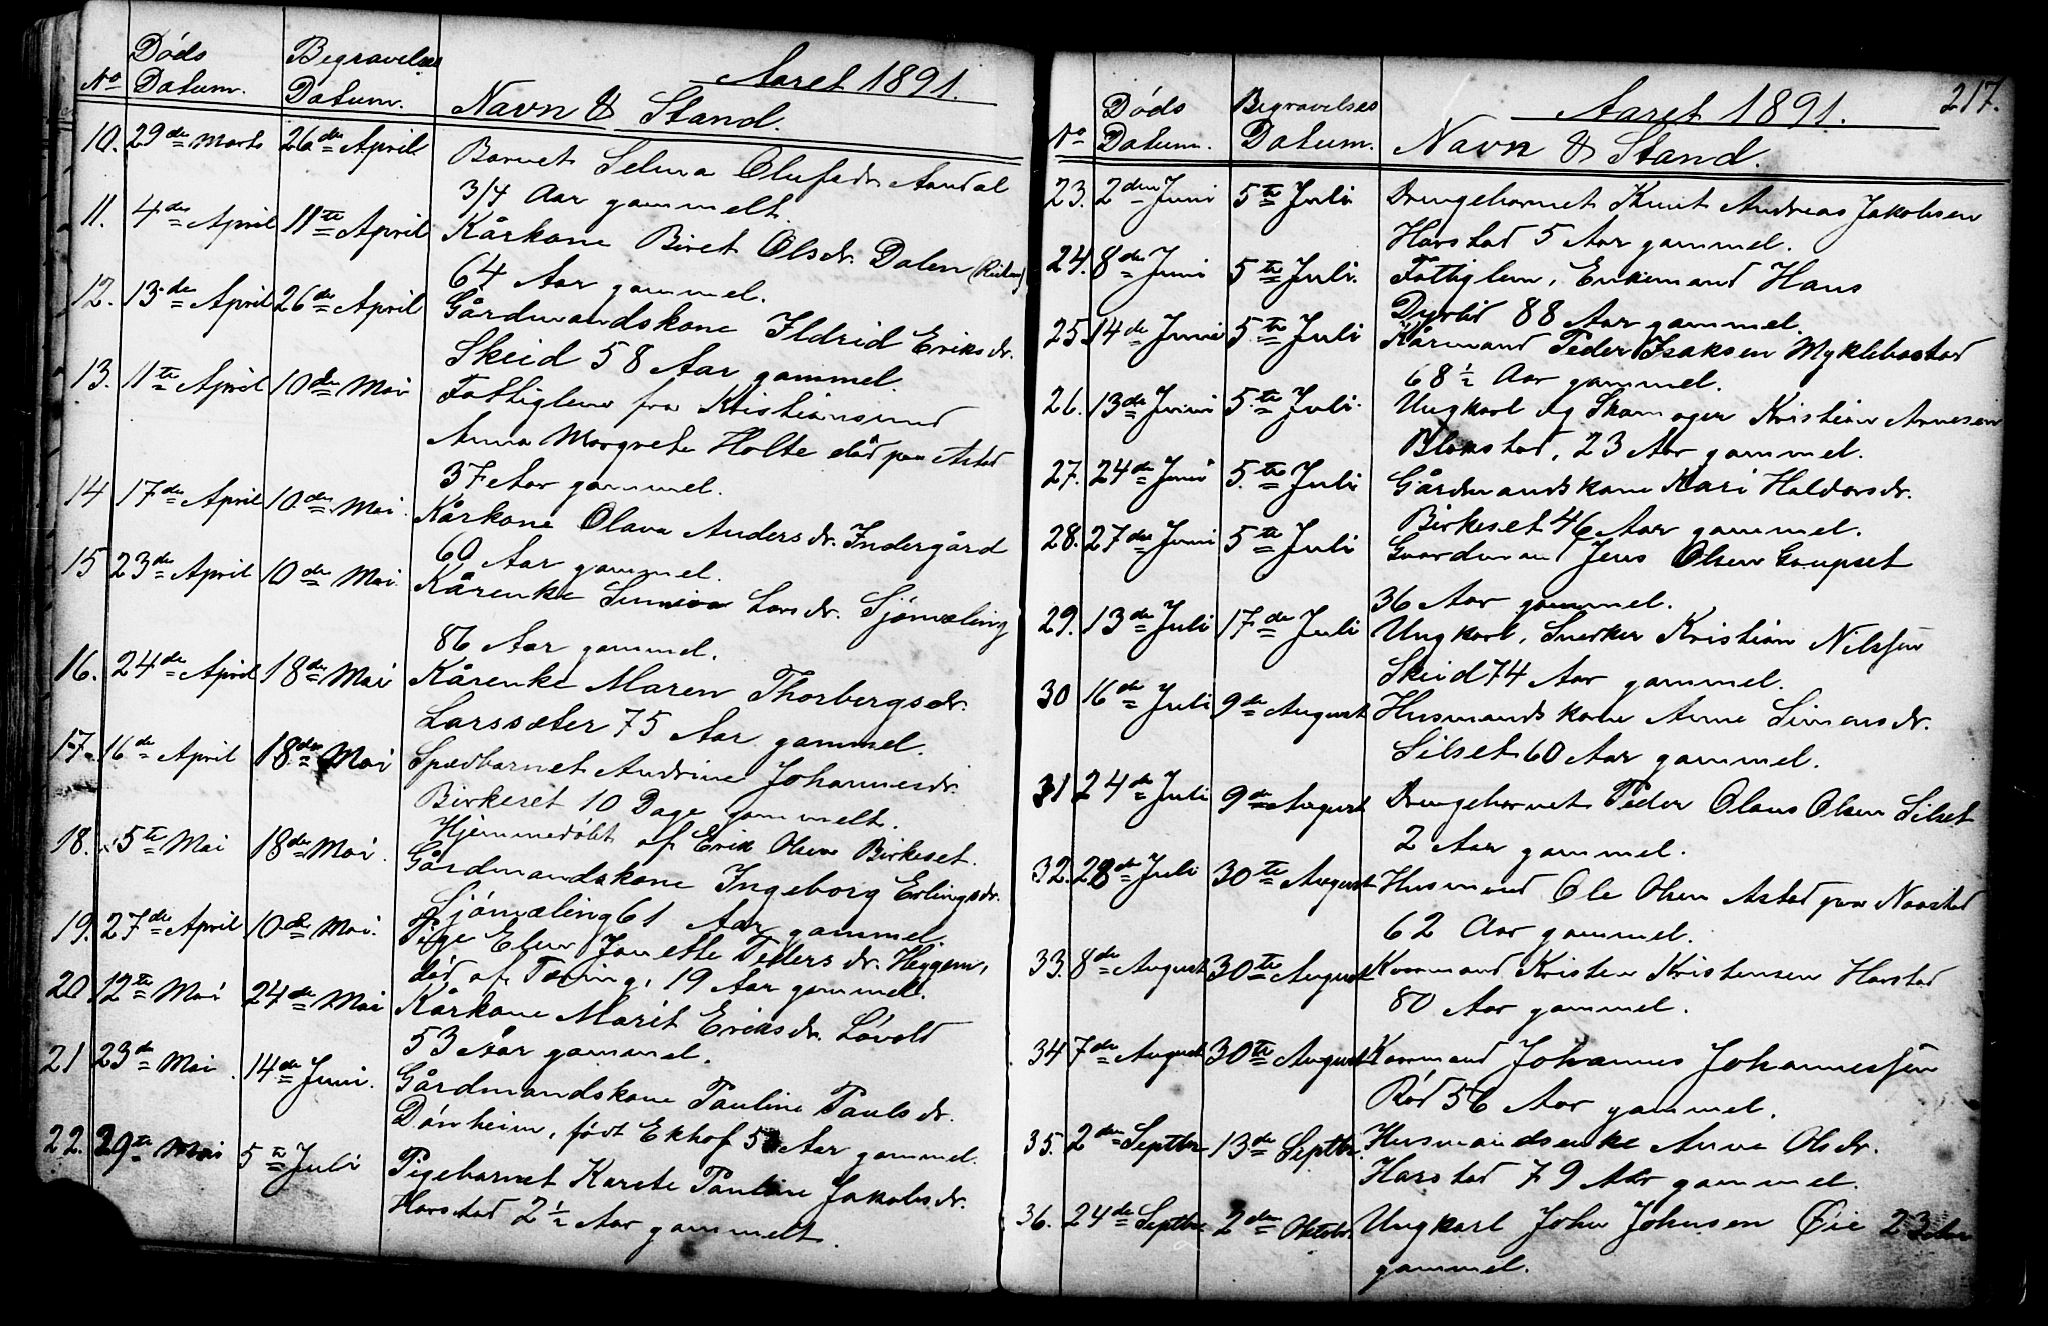 Aaret 1891.
No Døds Datum. Begravelses Datum. Navn & Stand.
10. 29de Marts 26de April Barnet Selma Olufsdr. Aandal
3/4 Aar gammelt.
11. 4de April 11te April Kårkone Biret Olsdr. Dalen
64 Aar gammel.
12. 13de April 26de April Gårdmandskone Ildrid Eriksdr.
Skeid 58 Aar gammel.
13. 11te April 10de Mai Fattiglem fra Kristiansund
Anna Margrete Holte død paa Astad
37 Aar gammel.
14 17de April 10de Mai. Kårkone Olava Andersdr. Indergård
60 Aar gammel.
15 23de April 10de Mai. Kårenke Sunniva Larsdr. Sjømæling
86 Aar gammel.
16. 24de April 18de Mai Kårenke Maren Thorbergsdr.
Larssæter 75 Aar gammel.
17. 16de April 18de Mai Spædbarnet Andrine Johannesdr.
Birkeset 10 Dage gammelt.
Hjemmedøbt af Erik Olsen Birkeset.
18. 5te Mai 18de Mai. Gårdmandskone Ingeborg Erlingsdr.
Sjømæling 61 Aar gammel.
19. 27de April 10de Mai. Pige Elen Janette Pedersdr. Heggem,
død af Tæring, 19 Aar gammel.
20 12te Mai 24de Mai Kårkone Marit Eriksdr. Løvold
53 Aar gammel.
21 23de Mai 14de Juni. Gårdmandskone Pauline Paulsdr.
Dønheim, født Ekhof Aar gammel.
22. 29te Mai 5te Juli Pigebarnet Karete Pauline Jakobsdr.
Harstad 2 1/2 Aar gammelt.
217.
Aaret 1891.
No Døds Datum. Begravelses Datum. Navn & Stand.
23. 2den Juni 5te Juli Drengebarnet Knut Andreas Jakobsen
Harstad 5 Aar gammel.
24. 8de Juni 5te Juli. Fattiglem, Enkemand Hans
Dyrlid 88 Aar gammel.
25. 14de Juni 5te Juli Kårmand Peder Isaksen Myklebostad
68 1/2 Aar gammel.
26. 13de Juni 5te Juli. Ungkarl og Skomager Kristian Arnesen
Blakstad, 23 Aar gammel.
27. 24de Juni 5te Juli Gårdmandskone Kari Haldorsdr.
Birkeset 46 Aar gammel.
28. 27de Juni 5te Juli Gaardmand Jens Olsen Gaupset
36 Aar gammel.
29. 13de Juli 17de Juli Ungkarl, Snedker Kristian Nilssen
Skeid 74 Aar gammel.
30 16de Juli 9de August Husmandskone Anne Simonsdr.
Silset 60 Aar gammel.
31 24de Juli 9de August Drengebarnet Peder Olaus Olsen Silset
2 Aar gammel.
32. 28de Juli 30te August Husmand Ole Olsen Astad paa Naastad
62 Aar gammel.
33. 8de August 30te August Kaarmand Kristen Kristensen Harstad
80 Aar gammel.
34 7de August 30te August Kaarmand Johannes Johannessen
Rød 56 Aar gammel.
35. 2den Septbr 13de Septbr. Husmandsenke Anne Olsdr.
Harstad 79 Aar gammel.
36. 24de Septbr 2den Oktobr. Ungkarl John Johnsen Øie 23 Aar
gammel.